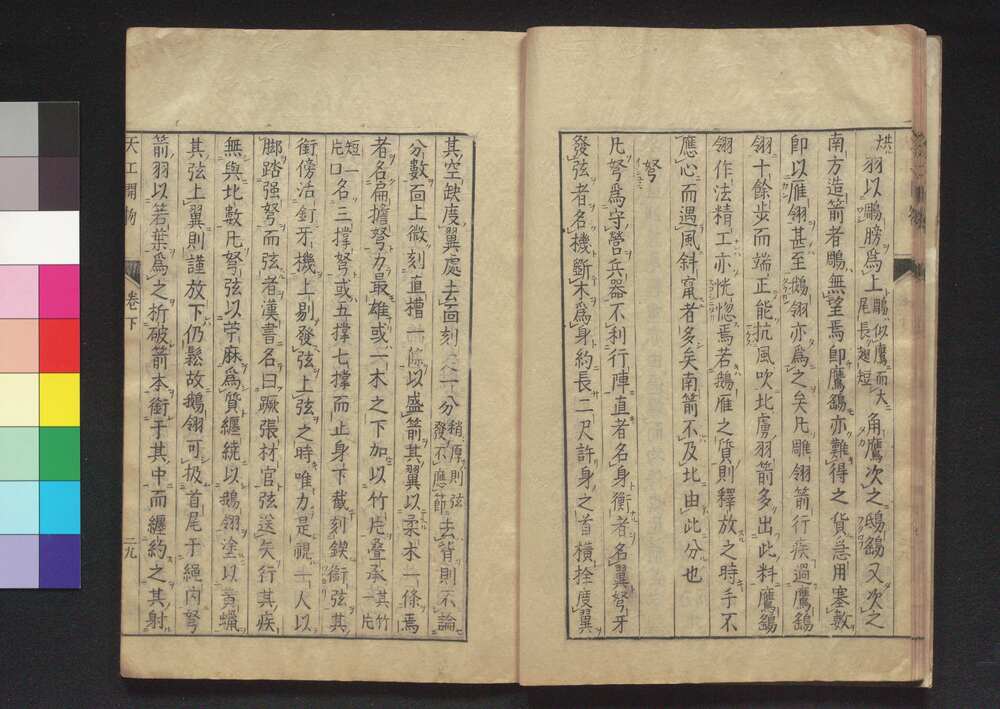 烘羽以鵰膀爲上鵰似鷹而大尾長翅短角鷹次之鴟鷂又次之
南方造箭者鵰無望焉卽鷹鷂亦難得之貨急用塞數
卽以雁翎甚至鵝翎亦爲之矣凡雕翎箭行疾過鷹鷂
翎十餘步而端正能抗風吹北虜羽箭多出此料鷹鷂
翎作法精工亦恍惚焉若鵝雁之質則釋放之時手不
應心而遇風斜竄者多矣南箭不及北由此分也
弩
凡弩爲守營兵器不利行陣直者名身衡者名翼弩牙
發弦者名機斲木爲身約長二尺許身之首橫拴度翼
其空缺度翼處去面刻一分稍厚則弦發不應節去背則不論
分數面上微刻直槽一條以盛箭其翼以柔木一條爲
者名扁擔弩力最雄或一木之下加以竹片疊承其竹一片
短一片名三撐弩或五撐七撐而止身下截刻鍥銜弦其
銜傍活釘牙機上剔發弦上弦之時唯力是視一人以
腳踏强弩而弦者漢書名曰蹶張材官弦送矢行其疾
無與比數凡弩弦以苧麻爲質纏繞以鵝翎塗以黃蠟
其弦上翼則謹放下仍鬆故鵝翎可扱首尾于繩內弩
箭羽以箬葉爲之析破箭本銜于其中而纏約之其射
天工開物
卷下
二九